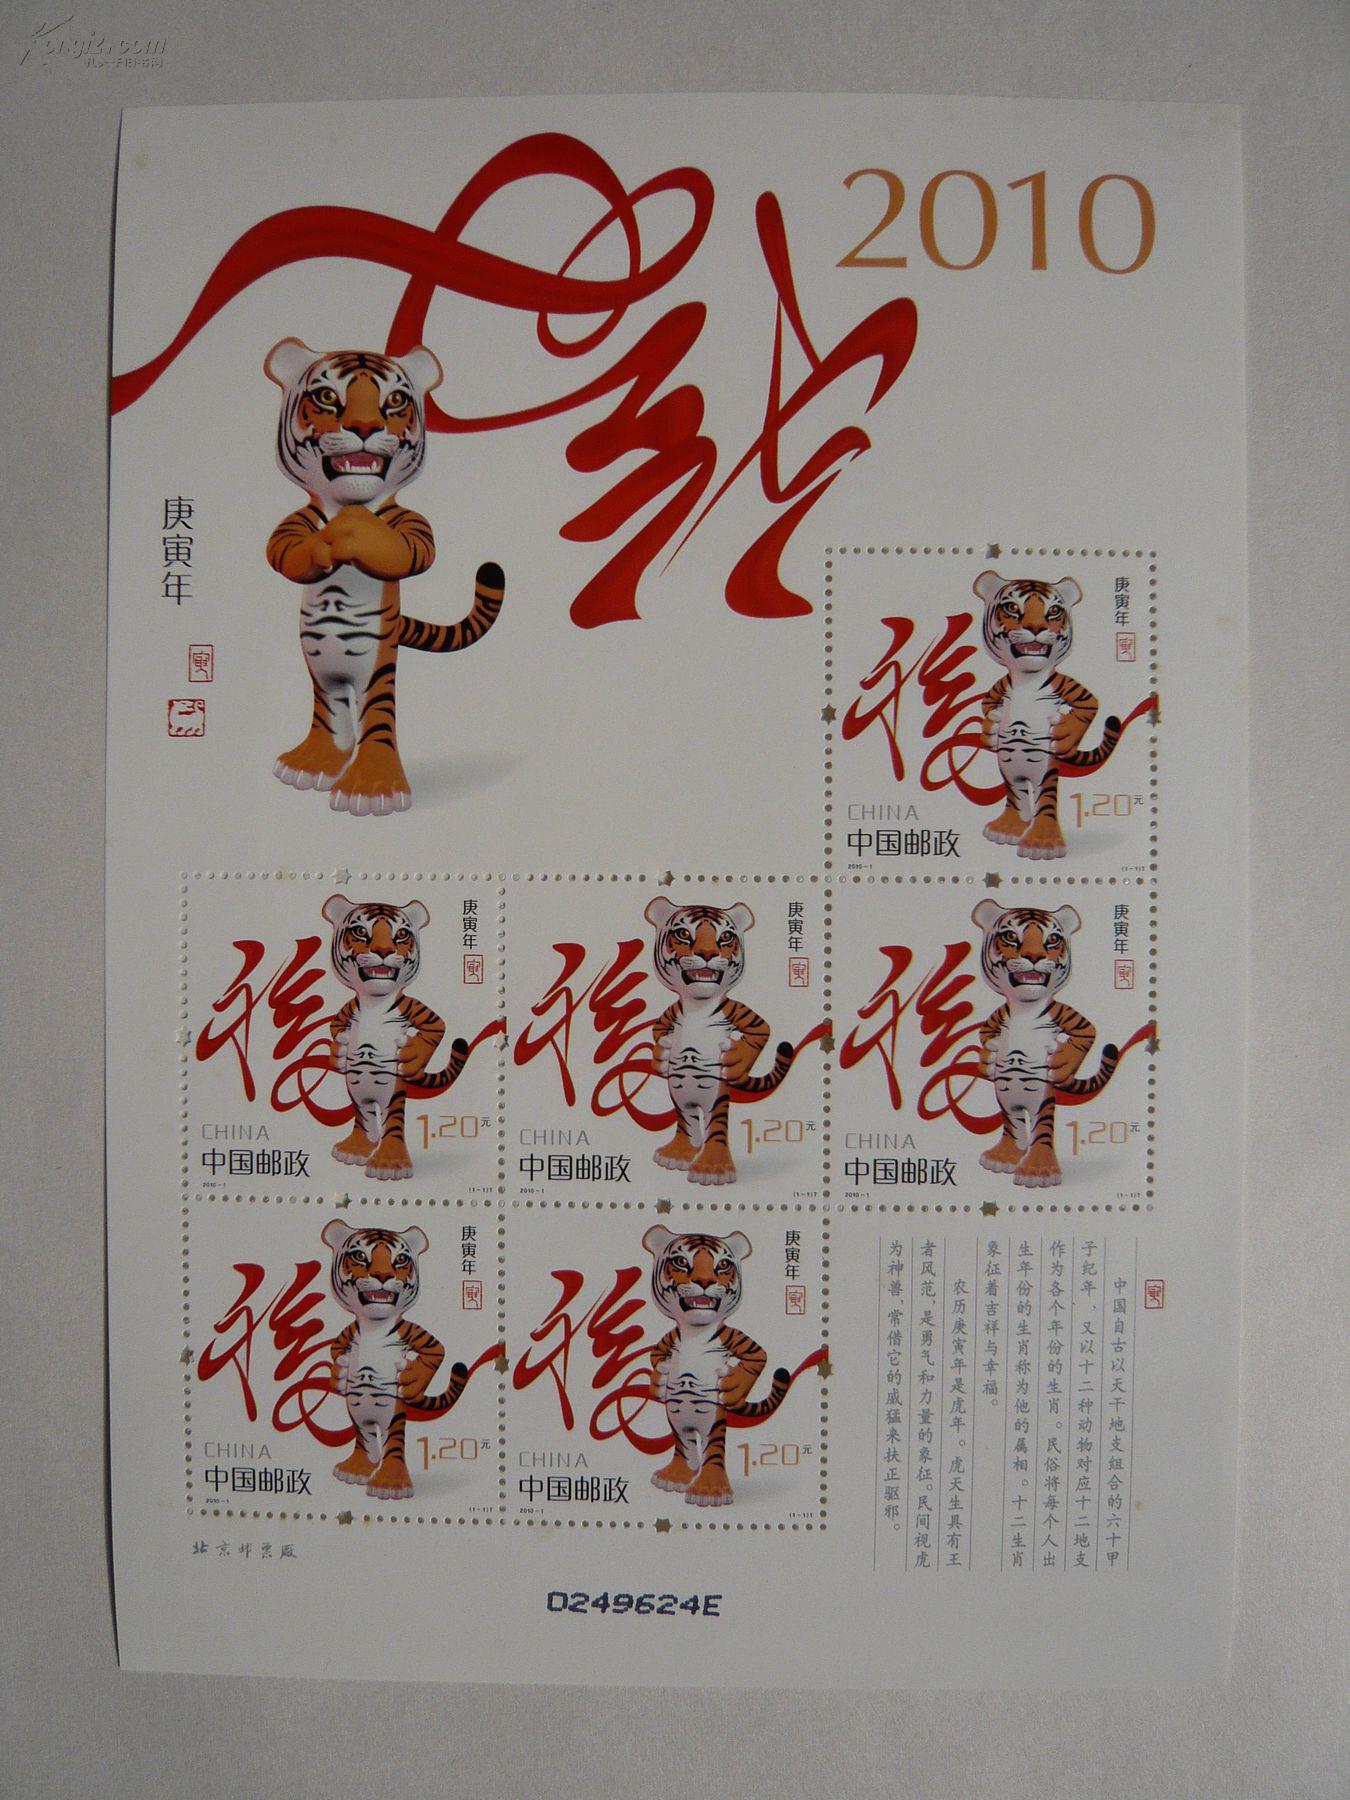 Kongfz.com
孔夫子旧书网
2010
庚寅年
寅
庚寅年
寅
福
1.20元
CHINA
中国邮政
2010-1
(1-1)T
庚寅年
寅
福
1.20元
CHINA
中国邮政
2010-1
(1-1)T
庚寅年
寅
福
1.20元
CHINA
中国邮政
2010-1
(1-1)T
庚寅年
寅
福
1.20元
CHINA
中国邮政
2010-1
(1-1)T
庚寅年
寅
福
1.20元
CHINA
中国邮政
2010-1
(1-1)T
庚寅年
寅
福
1.20元
CHINA
中国邮政
2010-1
(1-1)T
寅
中国自古以天干地支组合的六十甲
子纪年，又以十二种动物对应十二地支
作为各个年份的生肖。民俗将每个人出
生年份的生肖称为他的属相。十二生肖
象征着吉祥与幸福。
农历庚寅年是虎年。虎天生具有王
者风范，是勇气和力量的象征。民间视虎
为神兽，常借它的威猛来扶正驱邪。
北京邮票厂
0249624E